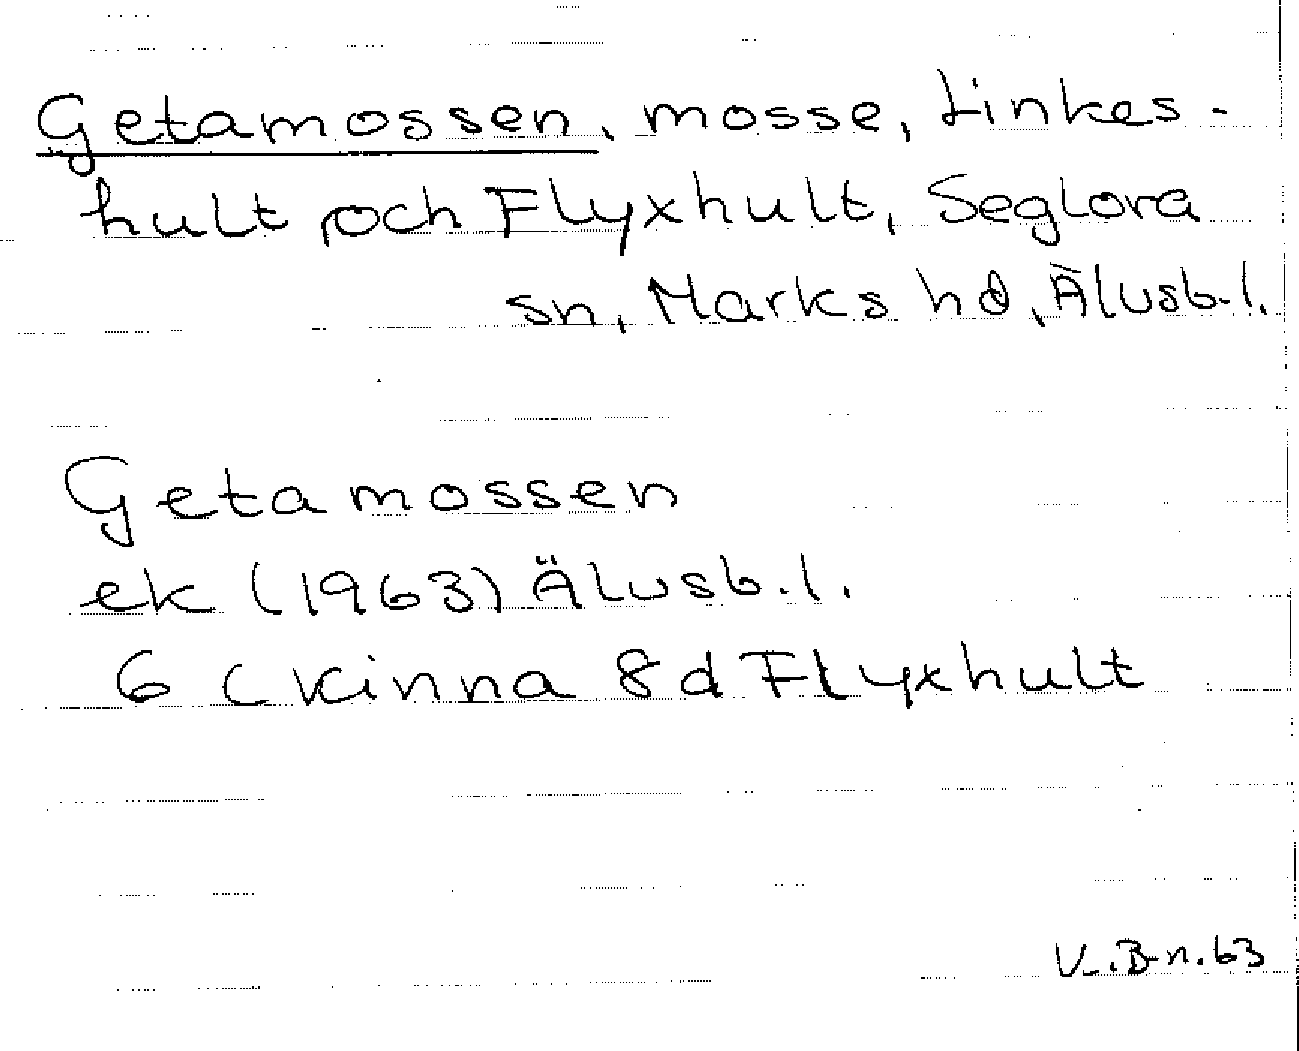 Getamossen, mosse, Linkes-
hult och Flyxhult, Seglora
sn, Marks hd, Älvsb.l.
Getamossen
ek (1963) Älvsb.l.
6 C Kinna 8d Flyxhult
V.B-n.63